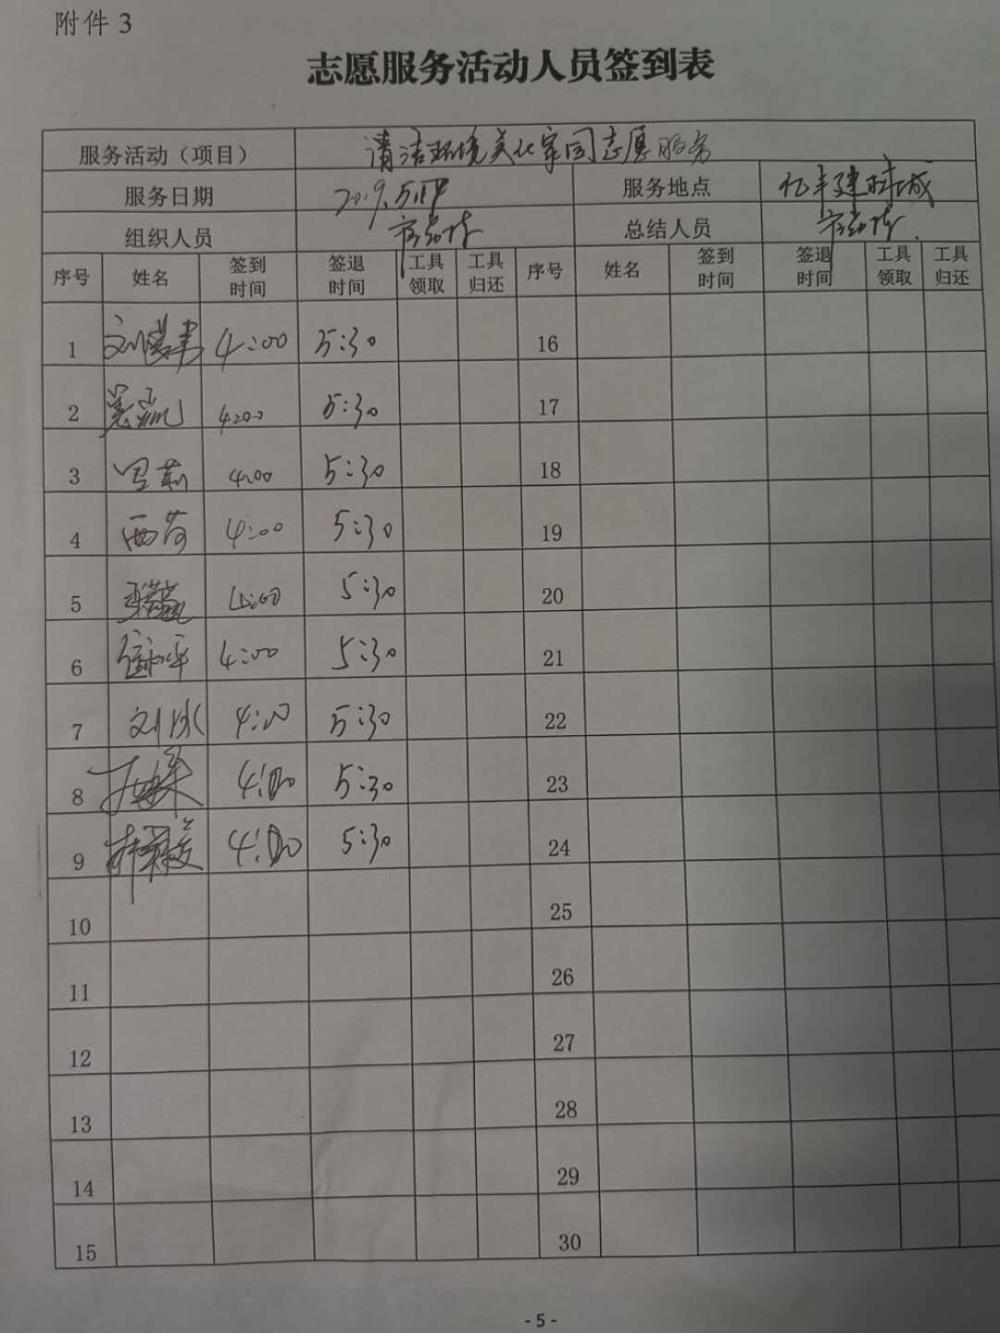 附件3
志愿服务活动人员签到表
服务活动（项目） 清洁环境美化家园志愿服务
服务日期 2019.5.17 服务地点 亿丰建材城
组织人员 总结人员
序号 姓名 签到时间 签退时间 工具领取 工具归还 序号 姓名 签到时间 签退时间 工具领取 工具归还
1 4:00 5:30 16
2 4:00 5:30 17
3 罗莉 4:00 5:30 18
4 西荷 4:00 5:30 19
5 4:00 5:30 20
6 4:00 5:30 21
7 刘冰 4:00 5:30 22
8 4:00 5:30 23
9 4:00 5:30 24
10 25
11 26
12 27
13 28
14 29
15 30
- 5 -